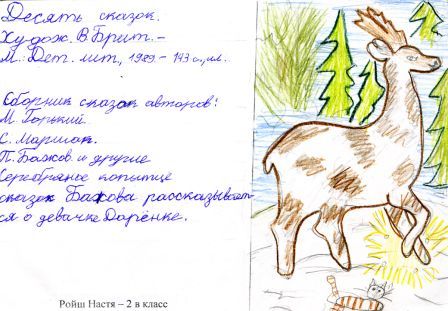 Десять сказок.
Худож. В. Брит. –
М.: Дет. лит, 1989 – 143 с., ил.
Сборник сказок авторов:
М. Горький
С. Маршак.
П. Бажов и другие
Серебряное копытце
сказок Бажова рассказывает
ся о девачке Дарёнке.
Ройш Настя – 2 в класс